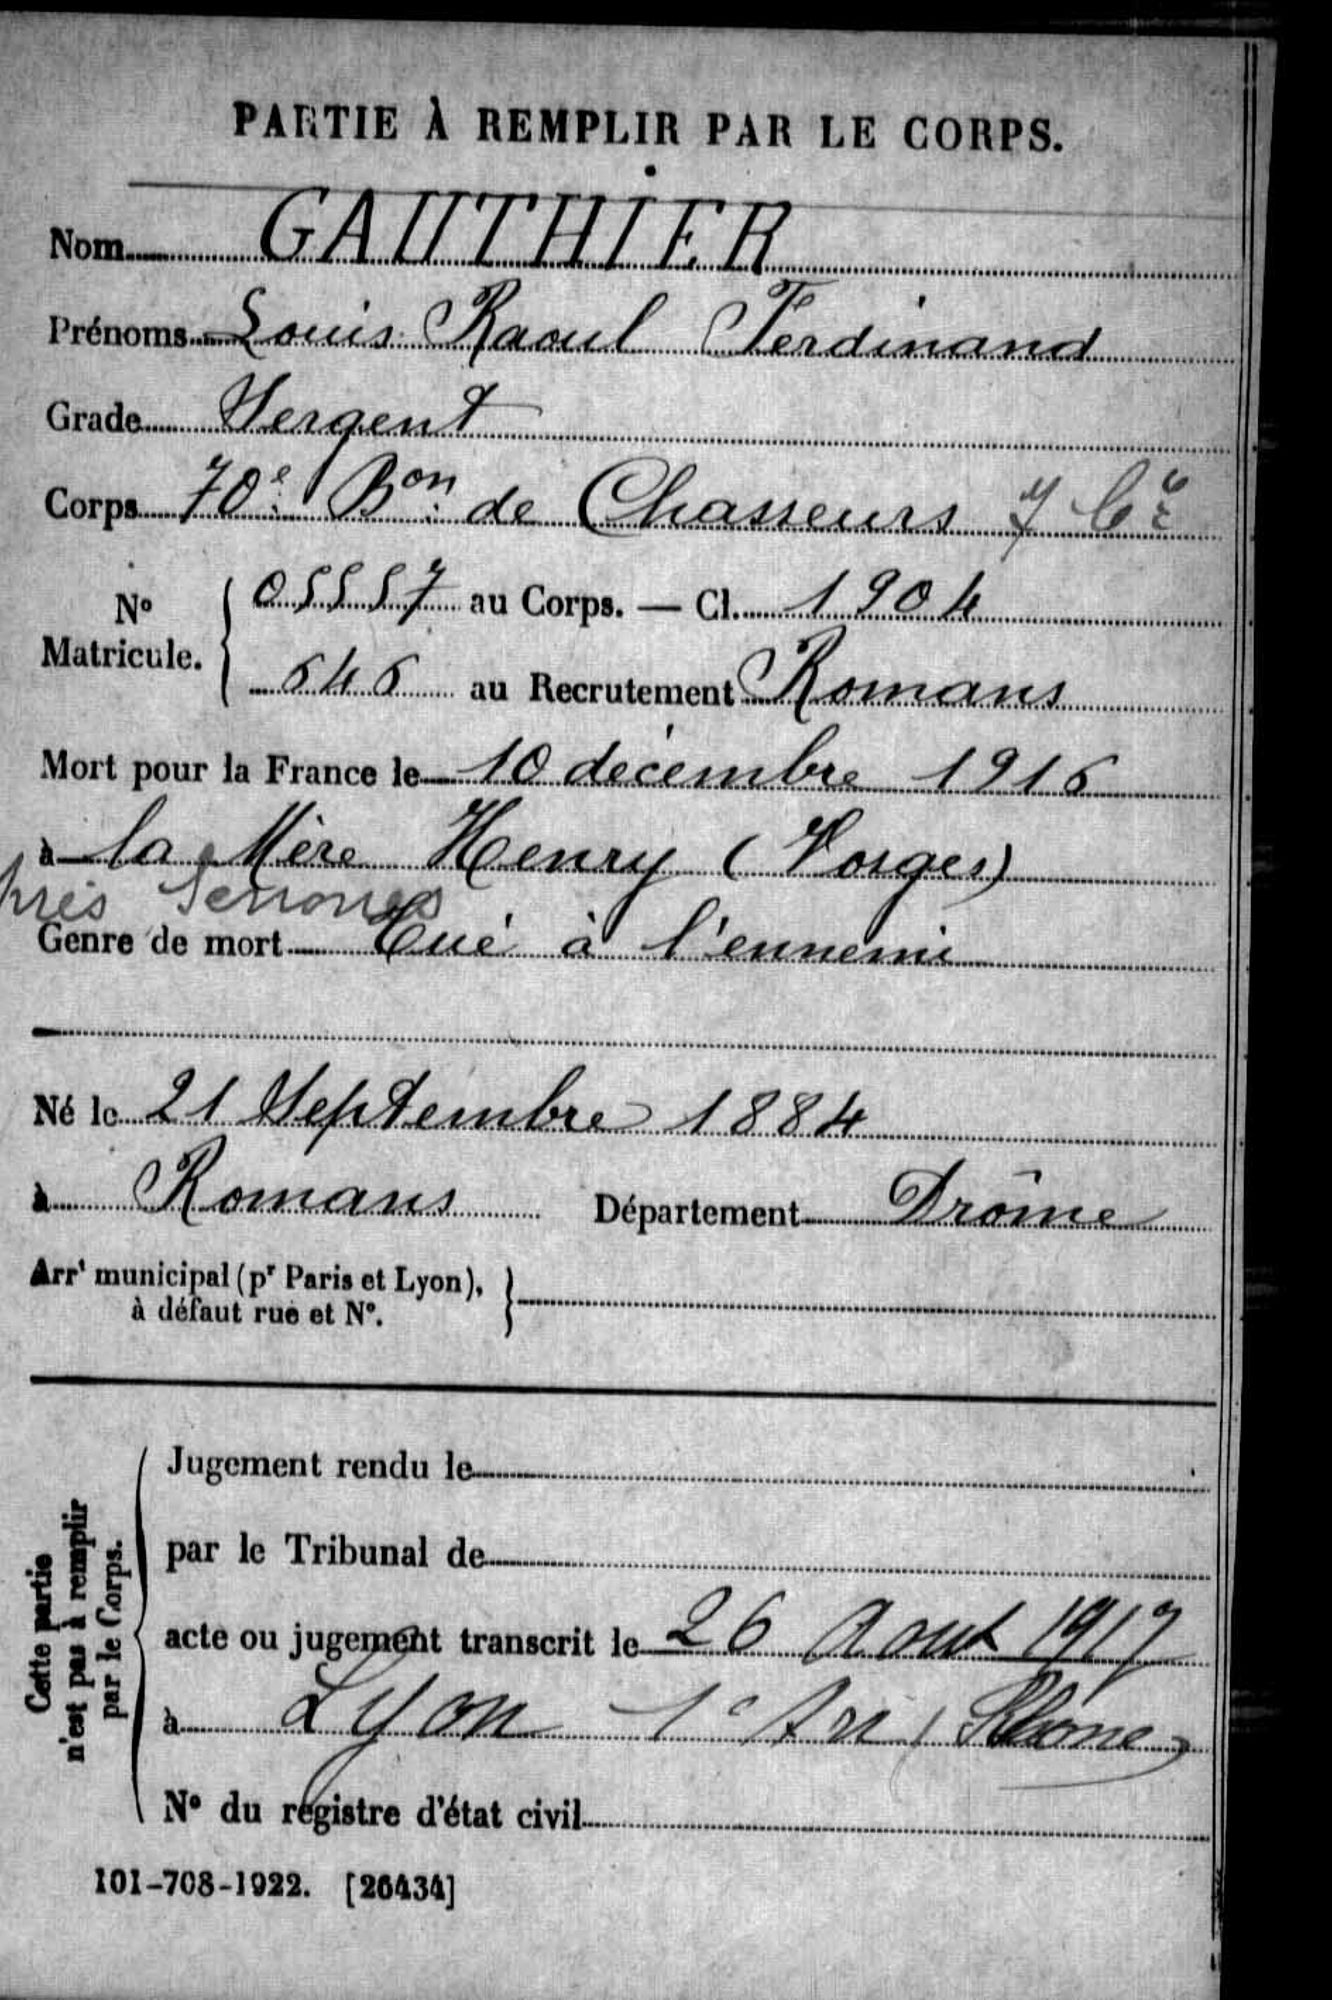 PARTIE À REMPLIR PAR LE CORPS.
Nom GAUTHIER
Prénoms Louis Raoul Ferdinand
Grade Sergent
Corps 70e Bon de Chasseurs 7 Cie
No Matricule. 05557 au Corps. — Cl. 1904
646 au Recrutement Romans
Mort pour la France le 10 décembre 1916
à la Mère Henry (Vosges)
près Senones
Genre de mort Tué à l'ennemi
Né le 21 Septembre 1884
à Romans Département Drôme
Arrt municipal (pr Paris et Lyon),
à défaut rue et No.
Cette partie
n'est pas à remplir
par le Corps.
Jugement rendu le
par le Tribunal de
acte ou jugement transcrit le 26 Aout 1917
à Lyon 1e Arr (Rhône)
No du registre d'état civil
101-708-1922. [26434]